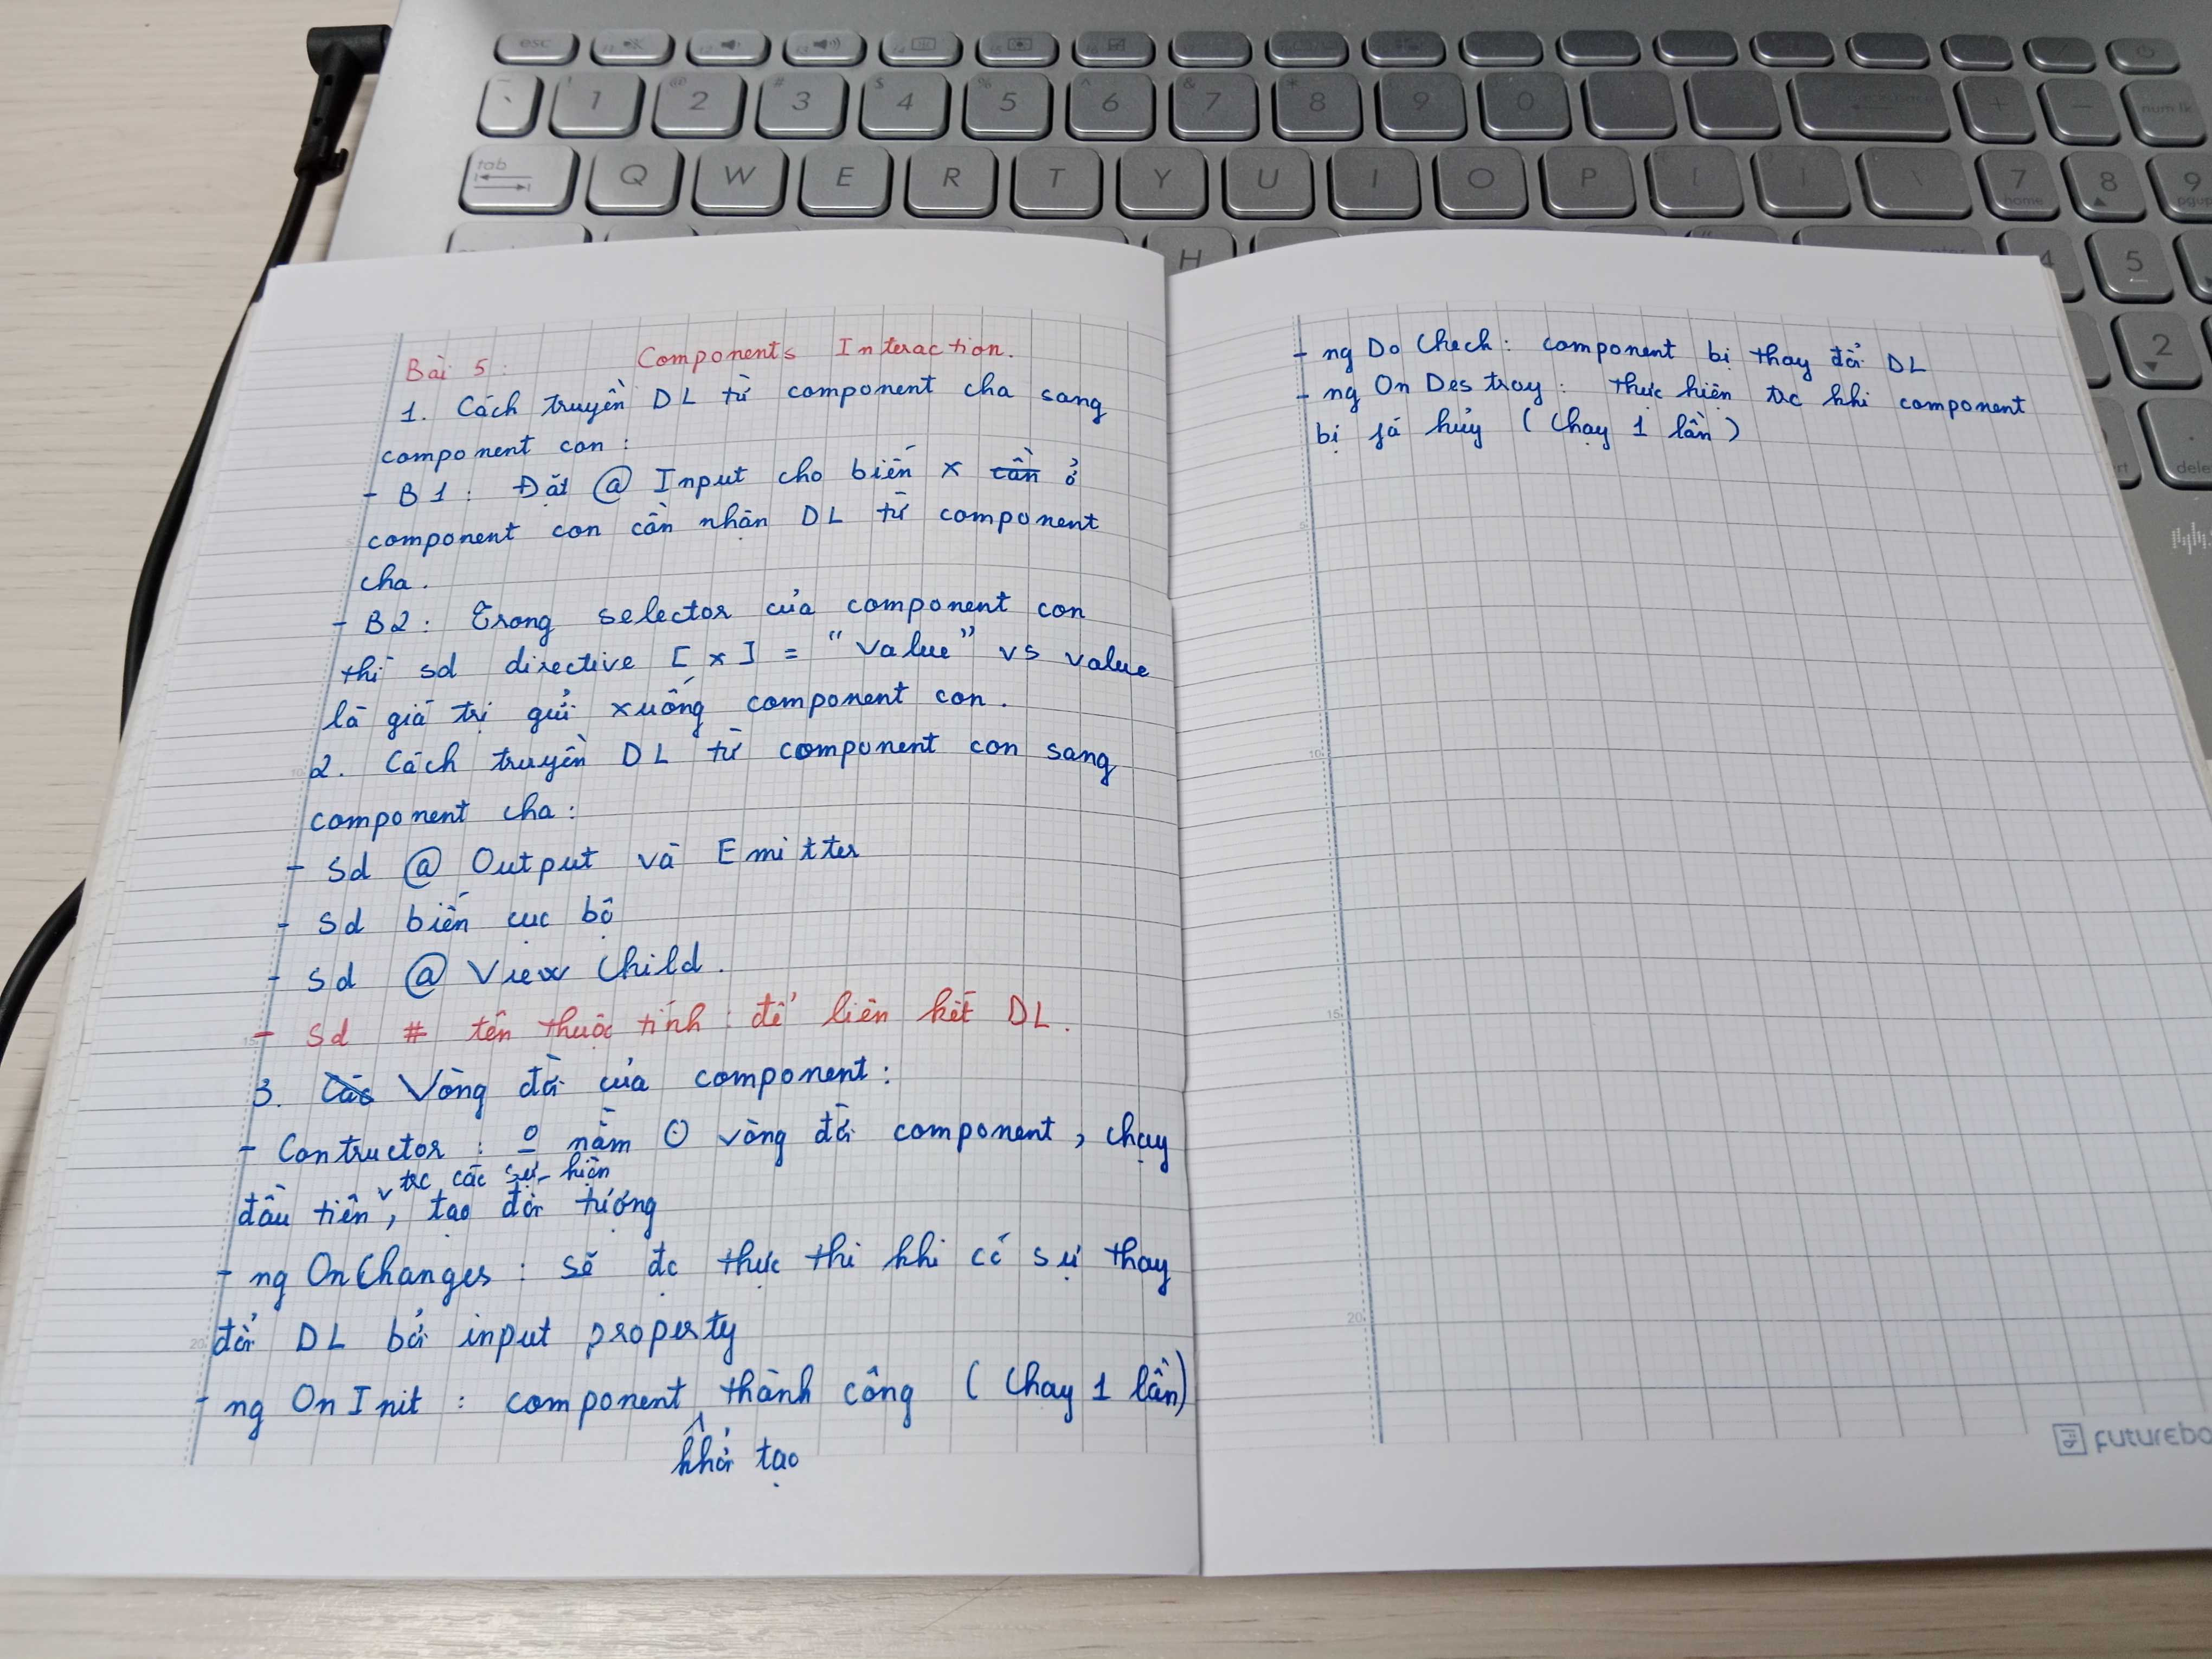 esc
1 2 3 4 5 6 7 8 9 0 num lk
tab Q W E R T Y U I O P 7 home 8 9 pgup
H 4 5
2
dele
Bài 5: Components Interaction.
1. Cách truyền DL từ component cha sang
component con:
- B1: Đặt @ Input cho biến x cần ở
component con cần nhận DL từ component
cha.
- B2: Trong selector của component con
thì sd directive [x] = "value" vs value
là giá trị gửi xuống component con.
2. Cách truyền DL từ component con sang
component cha:
- Sd @ Output và Emitter
- Sd biến cục bộ
- Sd @ View Child.
- Sd # tên thuộc tính: để liên kết DL.
3. Các Vòng đời của component:
- Contructor: o nằm ⊙ vòng đời component, chạy
trc các sự kiện
đầu tiên, tạo đối tượng
- ng OnChanges: sẽ đc thực thi khi có sự thay
đổi DL bởi input property
- ng OnInit: component thành công (Chạy 1 lần)
khởi tạo
- ng Do Check: component bị thay đổi DL
- ng On Destroy: thực hiện trc khi component
bị fá hủy (Chạy 1 lần)
5
10
15
20
10
15
20
futurebo